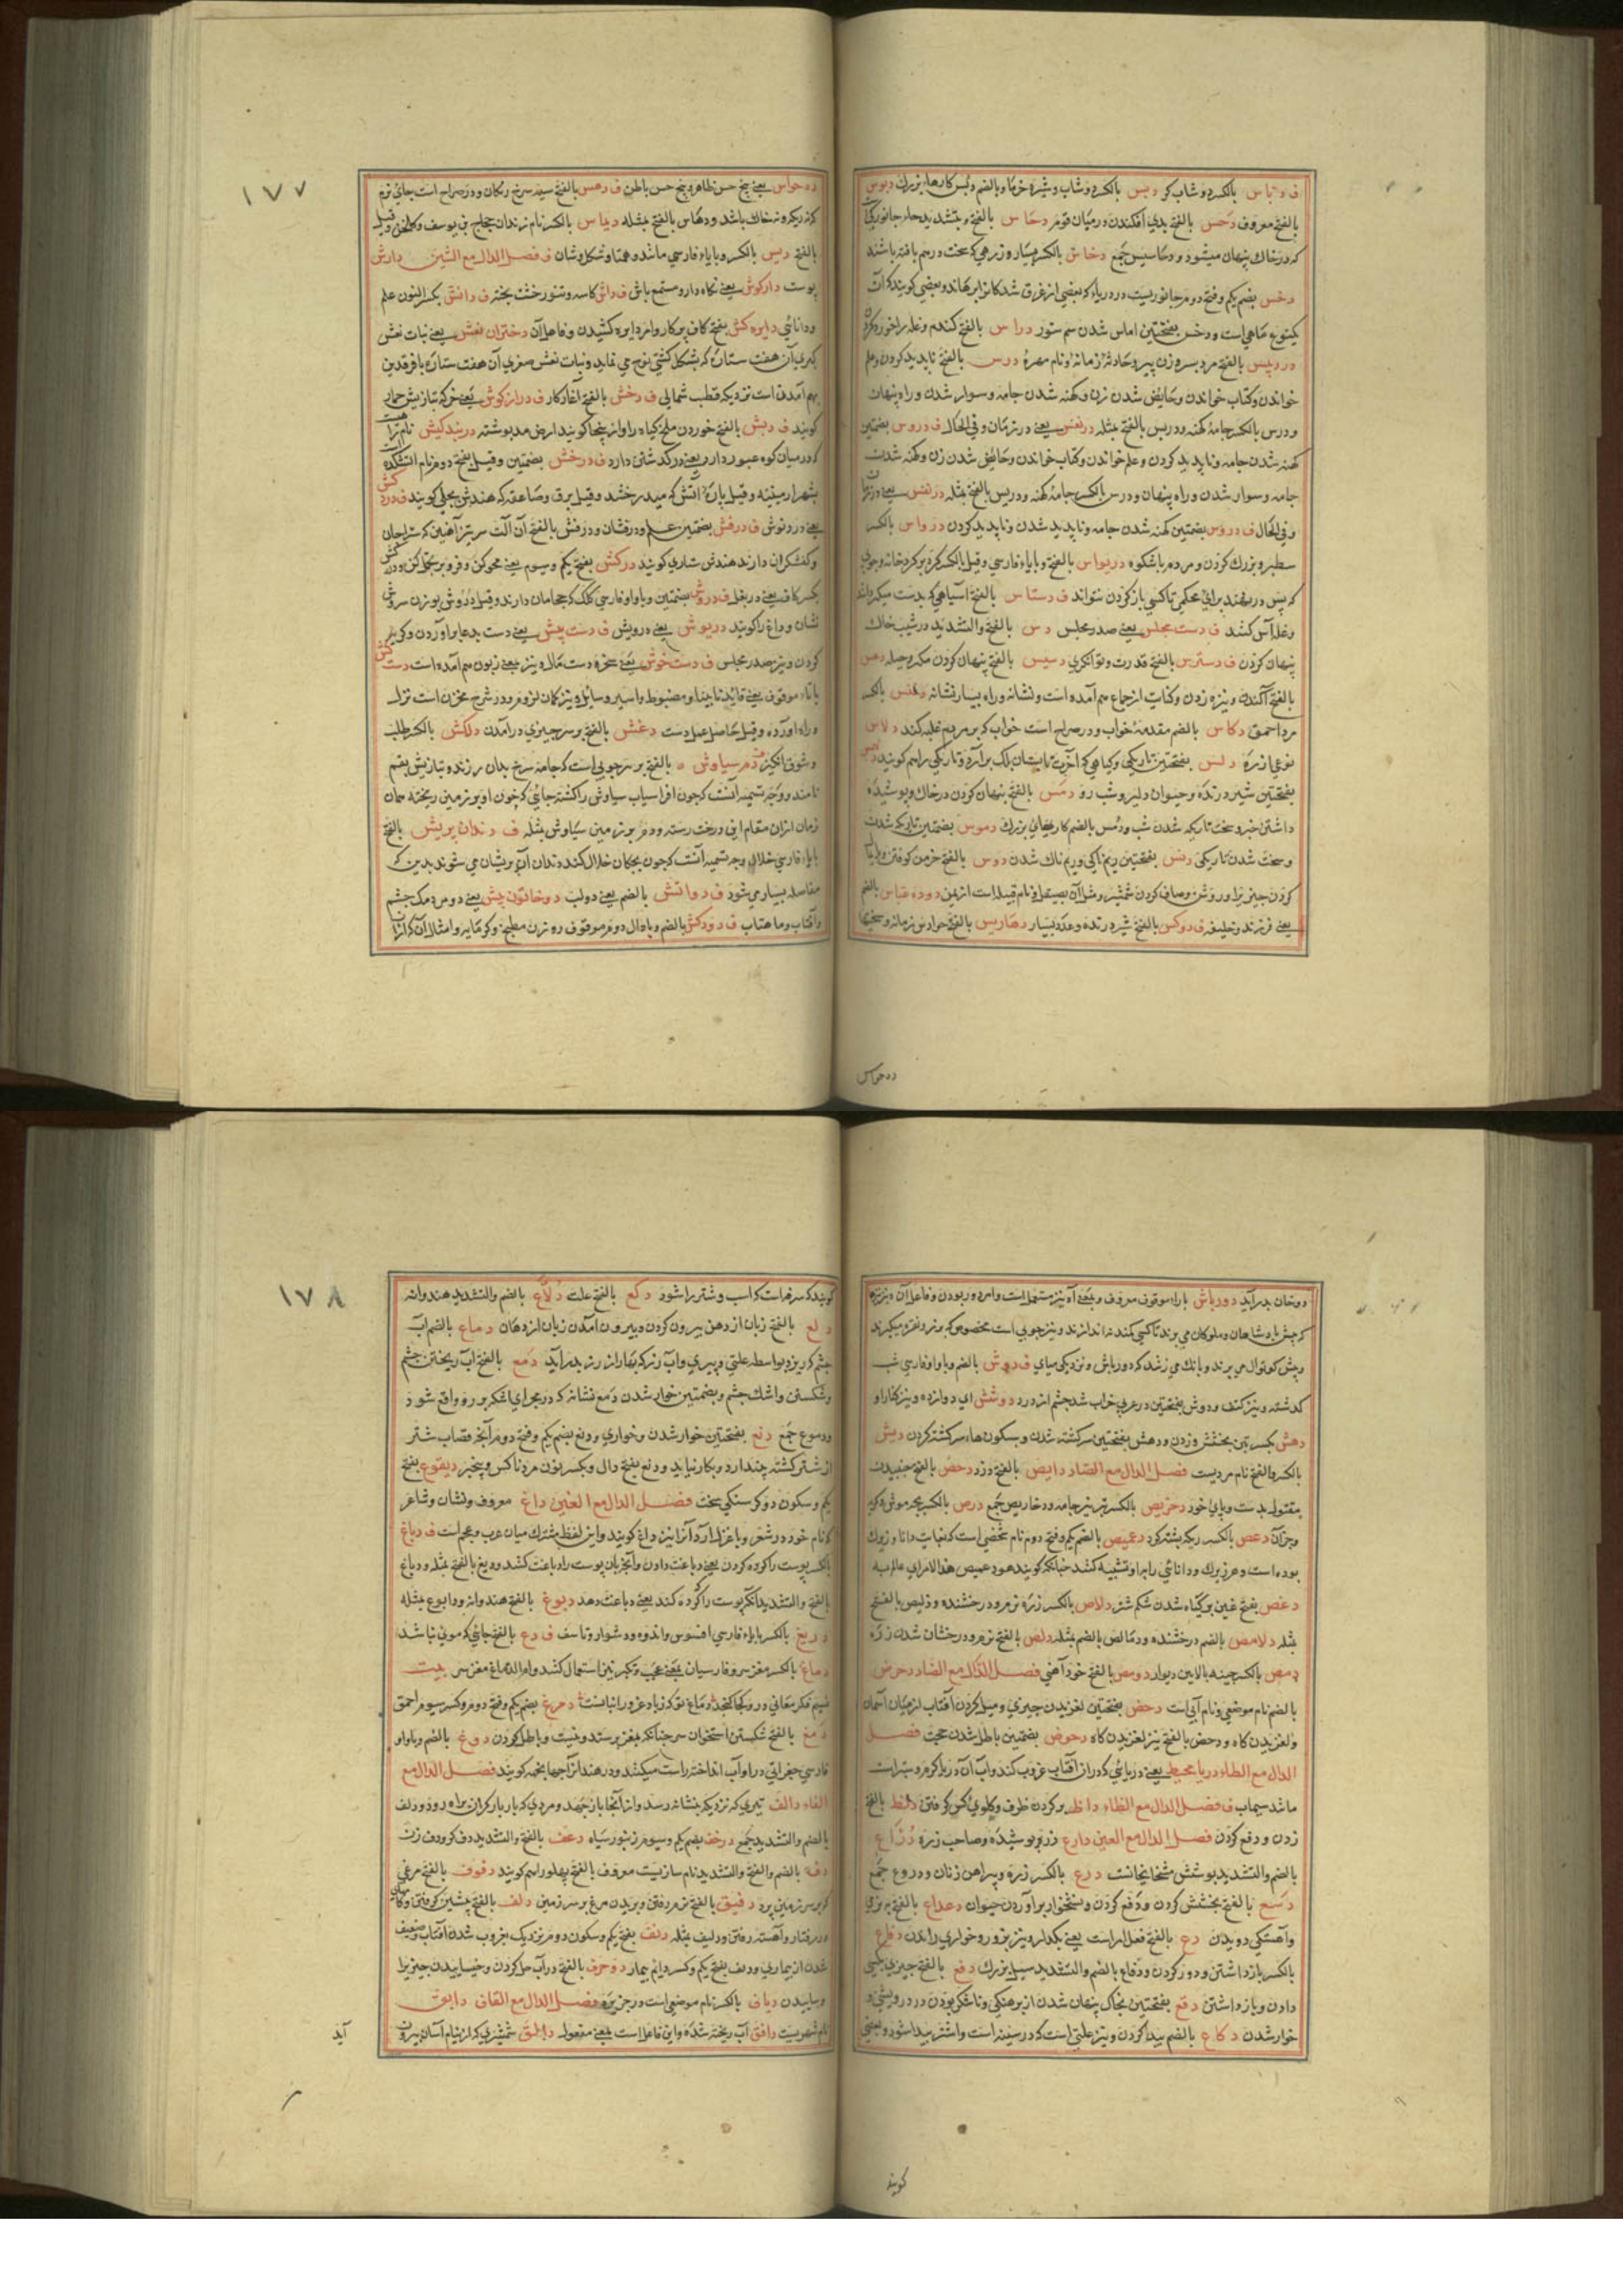 ف دباس بالکسر دوشاب کر دبس بالکسر دوشاب و شیره خرما و بالضم دبس کارهاء بزرک دبوس
بالفتح معروف دحس بالفتح بدی افکندن درمیان قوم دحاس بالفتح و بتشدید حاء جانوریکه
که در خاک پنهان میشود و دحاسیس جمع دخاس بالکسر بسیار و زرهی که سخت درهم بافته باشند
دخس بضم یکم و فتح دوم جانوریست در دریا که بعضی از غرق شدکان را برهاند و بعضی کویند که آن
یکنوع ماهی است و دخس بفتحتین اماس شدن سم ستور دراس بالفتح کندم و غله را خورد کردن
دردبیس بالفتح مرد پیر و زن پیر و حادثه زمانه و نام مهره درس بالفتح ناپدید کردن و علم
خواندن و کتاب خواندن و حایض شدن زن و کهنه شدن جامه و سوار شدن و راه پنهان
و درس بالکسر جامه کهنه و دریس بالفتح مثله درنفس یعنی در زمان و فی الحال ف دروس بضمتین
کهنه شدن جامه و ناپدید کردن و علم خواندن و کتاب خواندن و حائض شدن زن و کهنه شدن
جامه و سوار شدن و راه پنهان و درس بالکسر جامه کهنه و دریس بالفتح مثله درنفس یعنی در زمان
و فی الحال ف دروس بضمتین کهنه شدن جامه و ناپدید شدن و ناپدید کردن درواس بالکسر
سطبر و بزرک کردن و مردم باشکوه درپواس بالفتح و با پاء فارسی و قیل بالکسر کرد بر کرد خانه و چوبی
که پس در نهند برای محکمی تا کسی باز کردن نتواند ف دستاس بالفتح آسیاهی که بدست میکردانند
و غله آس کنند ف دست مجلس یعنی صدر مجلس دس بالفتح والتشدید در شیب خاک
پنهان کردن ف دسترس بالفتح قدرت و توانکری دسیس بالفتح پنهان کردن مکر و حیله دعس
بالفتح آکندن و نیزه زدن و کنایت از جماع هم آمده است و نشانه و راه بسیار نشانه دفنس بالکسر
مرد احمق دکاس بالضم مقدمه خواب و در صراح است خواب که بر مردم غلبه کند دلاس
نوعی از زره دلس بفتحتین تاریکی و کیاهی که آخر تابستان بلک برآرد و تاریکی را هم کویند
بفتحتین شیر درنده و حیوان دلیر و شب رو دمس بالفتح پنهان کردن در خاک و پوشیده
داشتن خبر و سخت تاریک شدن شب و دمس بالضم کارهای بزرک دموس بضمتین تاریک شدن
و سخت شدن تاریکی دنس بفتحتین ریم ناکی و ریم ناک شدن دوس بالفتح خرمن کوفتن و پایمال
کردن چیزی را و روشن و صاف کردن شمشیر و مثل آن بصیقل و نام قبیله است از یمن دوده عباس بالضم
یعنی فرزند و خلیفه ف دوکس بالفتح شیر درنده و عدد بسیار دهاریس بالفتح حوادث زمانه و سختیها
ده حواس
١٧٧
ده حواس یعنی پنج حس ظاهر و پنج حس باطن ف دهس بالفتح سپید سرخ رنکان و در صراح است جای نرم
که نه ریک و نه خاک باشد و دهاس بالفتح مثله دیماس بالکسر نام زندان حجاج بن یوسف و کلخن و قیل
بالفتح دیس بالکسر و با یاء فارسی مانند و همتا و شکل و شان ف فصل الدال مع الشین دارش
پوست دارکوش یعنی نکاه دار و مستمع باش ف داش کاسه و تنور خشت پخته ف دانش بکسر النون علم
و دانائی دایره کش بفتح کاف پرکار و امر دایره کشیدن و فاعل آن دختران نعش یعنی بنات نعش
کبری آن هفت ستاره که بشکل کشتی نوح می نماید و بنات نعش صغری آن هفت ستاره با فرقدین
بهم آمدن است نزدیک قطب شمالی ف دخش بالفتح آغاز کار ف درازکوش یعنی خر که بتازیش حمار
کویند ف دبش بالفتح خوردن ملخ کیاه را و از ینجا کویند ارض مدبوشته دربندکیش نام
که درمیان کوه عبور دارد یعنی درکذشتن دارد ف درخش بضمتین و قیل بفتح دوم نام آتشکده
بشهر ارمینیه و قیل پارهٔ آتش که میدرخشد و قیل برق و صاعقه که هندش بجلی کویند ف درد
یعنی دردنوش ف درفش بضمتین علم و درفشان و درفش بالفتح آن آلت سرتیز آهنین که سراجان
و کفشکران دارند هندش ستاری کویند درکش بفتح یکم و سیوم یعنی محو کن و فرو بر
بکسر کاف یعنی در بغل ف دروش بضمتین و با واو فارسی کلک که حجامان دارند و قیل دروش بوزن سروش
نشان و داغ را کویند درپوش یعنی درویش ف دست پیش یعنی دست بدعا برآوردن و کریه
کردن و نیز صدر مجلس ف دست خوش یعنی سخره دست مال و نیز بمعنی زبون هم آمده است دست کش
با تاء موقوف یعنی قاید نابینا و مضبوط و اسیر و سایل و نیز کمان نرم و در شرح مخزن است نزل
و راه آورده و قیل حاصل عمل دست دغش بالفتح بر سر چیزی درآمدن دلکش بالکسر طلب
و شوق انکیز دم سیاوش بالفتح بر سر چوبی است که جامه سرخ بدان رزند و بتازیش بقم
نامند و وجه تسمیه آنست که چون افراسیاب سیاوش را کشته جائی که خون او بر زمین ریخته همان
زمان ازان مقام این درخت رسته و دم بر زمین سیاوش مثله ف دندان پریش بالفتح
با پاء فارسی خلال و وجه تسمیه آنست که چون بچکان خلال کنند دندان آن پریشان می شوند بدین که
مفاسد بسیار می شود ف دو آتش بالضم یعنی دو لب دو خاتون بینش یعنی دو مردمک چشم
و آفتاب و ماهتاب ف دودکش بالضم و با دال دوم موقوف روزن مطبخ و کرمابه و امثال آن که ازان
دودخان بدر آید دورباش با راء موقوف معروف و بمعنی آه نیز مستعمل است و امر دور بودن و فاعل آن و نیز نیزه
که پیش پادشاهان و ملوکان می برند تا کسی کمند نه اندازند و نیز چوبی است مخصوص که بزر و نقره میکیرند
و پیش کوتوال می برند و بانک می زنند که دور باش و نزدیک میای ف دوش بالضم و با واو فارسی شب
کذشته و نیز کتف و دوش بفتحتین در عربی خراب شد چشم از درد دوشش ای دوازده و نیز کنار او
دهش بکسرتین بخشش و زدن و دهش بفتحتین سرکشته شدن و بسکون هاء سرکشته کردن دیش
بالکسر و الفتح نام مردیست فصل الدال مع الصاد دایص بالفتح دزد دحص بالفتح جنبیدن
مقتول بدست و پای خود دخریص بالکسر تریز جامه و دخاریص جمع درص بالکسر بچه موش و کربه
و جز آن دعص بالکسر ریک پشته کرد دعمیص بالضم یکم و فتح دوم نام شخصی است که بغایت دانا و زیرک
بوده است و هر زیرک و دانائی را بدو تشبیه کنند چنانکه کویند هو دعمیص هذا الامر ای عالم به
دغص بفتح غین پر کیاه شدن شکم شتر دلاص بالکسر زره نرم و درخشنده و دلیص بالفتح
مثله دلامص بالضم درخشنده و دمالص بالضم مثله دلص بالفتح نرم و درخشان شدن زره
دمص بالکسر چینه بالایین دیوار دومص بالفتح خود آهنی فصل الدال مع الضاد دحرض
بالضم نام موضعی و نام آبی است دحض بفتحتین لغزیدن چیزی و میل کردن آفتاب از میان آسمان
و لغزیدن کاه و دحض بالفتح نیز لغزیدن کاه دحوض بضمتین باطل شدن حجت فصل
الدال مع الطاء دریا محیط یعنی دریائی که دران آفتاب غروب کند و آب آن دریا کرم و سبز است
مانند سیماب ف فصل الدال مع الظاء داظ پر کردن ظرف و کلوی کس کرفتن دلظ بالفتح
زدن و دفع کردن فصل الدال مع العین دارع زره پوشیده و صاحب زره دراع
بالضم والتشدید پوشش مشخایخانست درع بالکسر زره و پیراهن زنان و دروع جمع
دسع بالفتح بخشش کردن و دفع کردن و نشخوار برآوردن حیوان دعداع بالفتح
و آهستکی دویدن دع بالفتح فعل امر است یعنی بکذار و نیز بزور و خواری راندن دفاع
بالکسر باز داشتن و دور کردن و دفاع بالضم والتشدید سیل بزرک دفع بالفتح چیزی بکسی
دادن و باز داشتن دقع بفتحتین بخاک پنهان شدن از برهنکی و ناشکر بودن در درویشی و
خوار شدن دکاع بالضم پیدا کردن و نیز علتی است که در سینه است و اشتر پیدا شود و بعضی
کویند
١٧٨
کویند که سرفه است که اسب و شتر را شود دکع بالفتح علت دلاع بالضم والتشدید هندوانه
دلع بالفتح زبان از دهن بیرون کردن و بیرون آمدن زبان از دهان دماع بالضم آب
چشم که ریزد بواسطه علتی و پیری و آب رز که بهار از رز بدر آید دمع بالفتح آب ریختن چشم
و شکستن و اشک چشم و بضمتین خمار شدن دمع نشانه که در مجرای اشک بر رو واقع شود
و دموع جمع دنع بفتحتین خوار شدن و خواری و دنع بضم یکم و فتح دوم آنچه قصاب شتر
از شتر کشته چند ارد و بکار نیاید و دنع بفتح دال و بکسر نون مرد ناکس و بیخبر دیقوع بفتح
یکم و سکون دوم کرسنکی سخت فصل الدال مع الغین داغ معروف و نشان و شاعر
که نام خود در شعر و یا غزل آرد آنرا نیز داغ کویند و این لفظ مشترک میان عرب و عجم است ف دباغ
بالکسر پوست را کوده کردن یعنی دباغت دادن و آنچه بآن پوست را دباغت کنند و دبغ بالفتح مثله و دباغ
بالفتح والتشدید آنکه پوست را کوده کند یعنی دباغت دهد دبوغ بالفتح هندوانه و دابوغ مثله
دریغ بالکسر با یاء فارسی افسوس و اندوه و دشوار و تاسف ف دغ بالفتح جائی که موی نباشد
دماغ بالکسر مغز سر و فارسیان بمعنی عجب و تکبر نیز استعمال کنند و ام الدماغ مغز سر بیت
نسیم فکر معانی درو کجا کنجد دماغ تو که ز باد غرور انباشت دمرغ بضم یکم و فتح دوم و کسر سیوم احمق
دمغ بالفتح شکستن استخوان سر چنانکه بمغز برسد و نیست و باطل کردن دوغ بالضم و با واو
فارسی جغراتی درو آب انداخته راست میکنند و در هند آنرا چهاچهه کویند فصل الدال مع
الفاء دالف تیری که نزدیک بنشانه رسد و از آنجا باز جهد و مردی که بار بار کران براه رود و دلف
بالضم والتشدید جمع درخف بضم یکم و سیوم زنبور سیاه دعف بالفتح والتشدید دف کر و دف زن
دف بالضم والفتح والتشدید نام سازیست معروف بالفتح پهلو را هم کویند دفوف بالفتح مرغی
که بر سر زمین پرد دفیف بالفتح نرم رفتن و پریدن مرغ بر سر زمین دلف بالفتح پیشین کوفتن
در رفتار و آهسته رفتن و دلیف مثله دنف بفتح یکم و سکون دوم نزدیک بغروب شدن آفتاب و ضعیف
شدن از بیماری و دنف بفتح یکم و کسر دایم بیمار دوحرف بالفتح در آب حل کردن و خیسانیدن چیزی را
و ساییدن دیاف بالکسر نام موضعی است در جزیره فصل الدال مع القاف دابق
نام شهریست دافق آب ریخته شده و این فاعل است بمعنی مفعول دالق شمشیری که از نیام آسان بیرون
آید